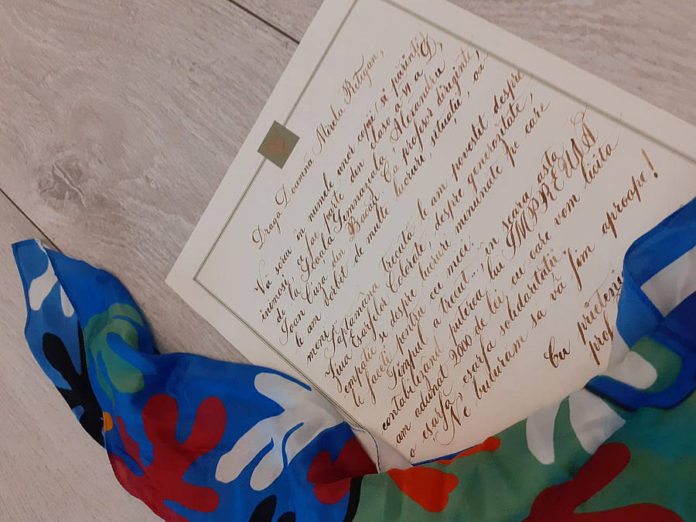 Draga Doamnă Mirela Retegan,
Vă scriu în numele unor copii și părinți
inimoși ce fac parte din clasa a V a D,
de la Școala Gimnazială "Alexandru
Ioan Cuza" din Bacău. Ca profesor diriginte
le am vorbit de multe lucruri, situații,
Săptămâna trecută le am povestit despre
Ziua Eșarfelor Colorate, despre generozitate,
empatie și despre lucruri minunate pe care
le faceți pentru cei mici.
Timpul a trecut..., în seara asta
contabilizând puterea lui ÎMPREUNĂ
am adunat 2000 de lei, cu care vom licita
o eșarfă a solidarității.
Ne bucurăm să vă fim aproape!
Cu prietenie
prof.